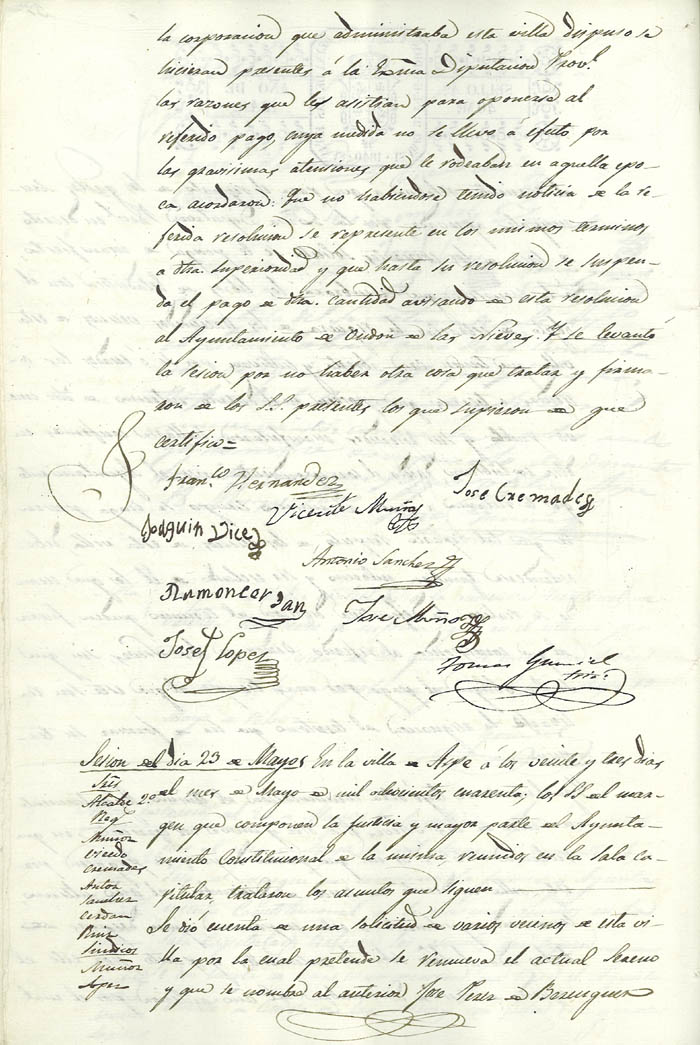 la corporacion que administraba esta villa dispuso se
hicieran presentes á la Exma Diputacion Provl.
las razones que les asistian para oponerse al
referido pago, cuya medida no se llevo á efuto por
las gravisimas atensiones que le rodeaban en aquella epo-
ca, acordaron: Que no habiendose tenido noticia de la re-
ferida resolucion se represente en los mismos terminos
a dha. superioridad y que hasta su resolucion se suspen-
da el pago de dha. cantidad avisando de esta resolucion
al Ayuntamiento de Ondon de las Nieves. Y se levantó
la sesion por no haber otra cosa que tratar y firma-
ron de los SS. presentes los que supieron de que
certifico=
Franco. Hernandez
Jose Cremades
Vicente Muñoz
Joaquin Vicedo
Antonio Sanchez
Ramon Cerdan
Jose Muñoz
Josef Lopez
Tomas
Srio.
Sesion del dia 23 de Mayo
En la villa de Aspe á los veinte y tres dias
del mes de Mayo de mil ochocientos cuarenta; los SS del mar-
gen que componen la Justicia y mayor parte del Ayunta-
miento Constitucional de la misma reunidos en la Sala ca-
pitular, trataron los asuntos que siguen
Se dió cuenta de una solicitud de varios vecinos de esta vi-
lla por la cual pretende se remueva el actual Sereno
y que se nombre al anterior Jose Perez de Berenguer
Sres
Alcalde 2º
Reg.
Muñoz
Vicedo
Cremades
Anton
Sanchez
Cerdan
Sindicos
Muñoz